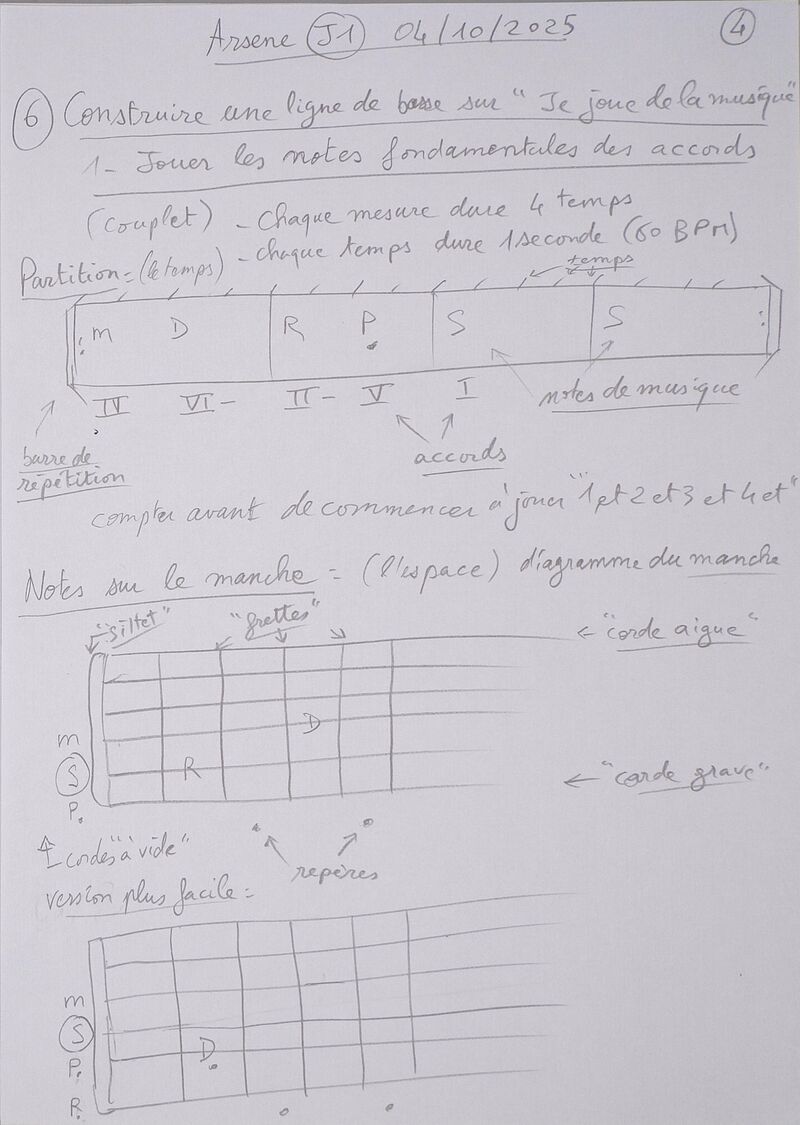 Arsene J1 04/10/2025 4
6 Construire une ligne de basse sur "Je joue de la musique"
1- Jouer les notes fondamentales des accords
(couplet) - Chaque mesure dure 4 temps
Partition = (le temps) - chaque temps dure 1 seconde (60 BPM)
temps
: m D R P. S S :
IV VI- II- V I notes de musique
barre de répétition accords
compter avant de commencer à jouer "1 et 2 et 3 et 4 et"
Notes sur le manche = (l'espace) diagramme du manche
"sillet" "frettes" ← "corde aigue"
m D
S R ← "corde grave"
P.
cordes "à vide" repères
version plus facile =
m
S
P. D.
R.